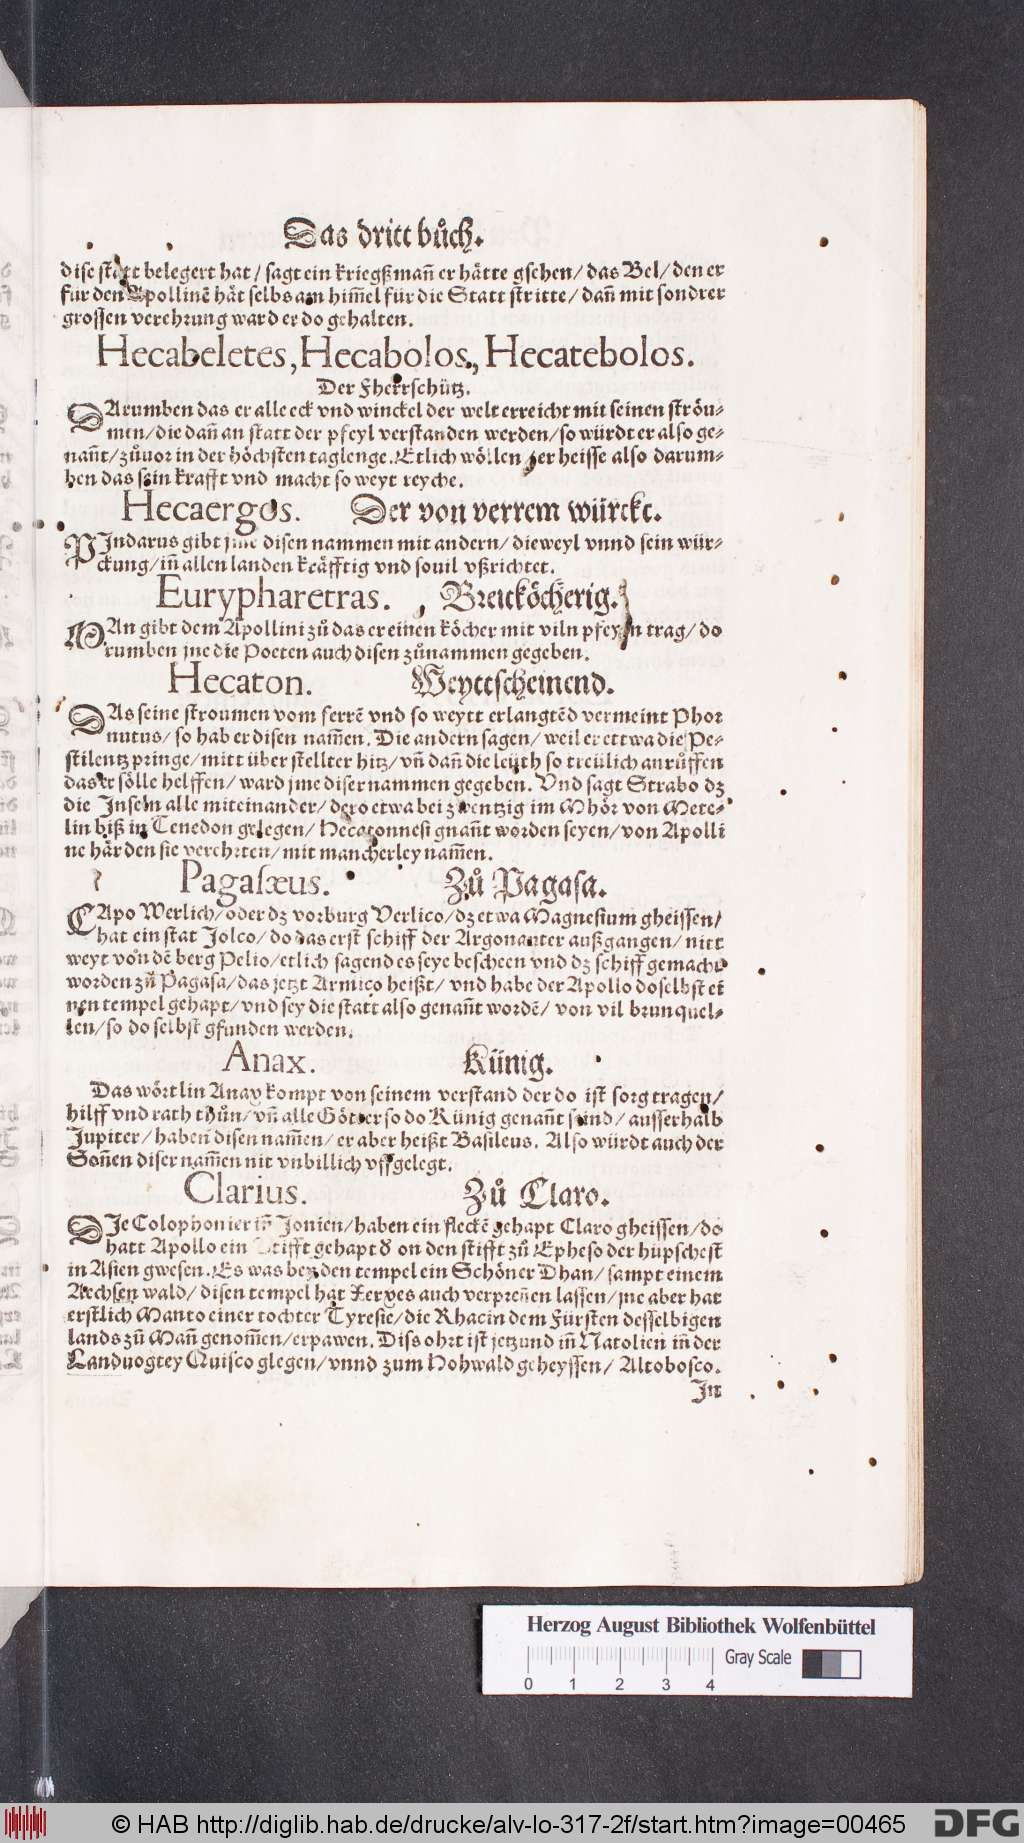 Das dritt bůch.
dise statt belegert hat / sagt ein kriegßmañ er hätte gsehen / das Bel / den er
für den Apollinē hät selbs am him̃el für die Statt stritte / dañ mit sondrer
grossen verehrung ward er do gehalten.
Hecabeletes, Hecabolos, Hecatebolos.
Der Fherrschütz.
DArumben das er alle eck vnd winckel der welt erreicht mit seinen ströu-
men / die dañ an statt der pfeyl verstanden werden / so würdt er also ge-
nañt / zůuor in der höchsten taglenge. Etlich wöllen er heisse also darum-
ben das sein krafft vnd macht so weyt reyche.
Hecaergos. Der von verrem würckt.
PIndarus gibt jme disen nammen mit andern / dieweyl vnnd sein wür-
ckung / iñ allen landen kräfftig vnd souil vßrichtet.
Eurypharetras. Breitköcherig.
MAn gibt dem Apollini zů das er einen köcher mit viln pfeylen trag / do
rumben jne die Poeten auch disen zůnammen gegeben.
Hecaton. Weyttscheinend.
DAs seine stroumen vom ferrē vnd so weytt erlangtēd vermeint Phor
nutus / so hab er disen nam̃en. Die andern sagen / weil er ettwa die Pe-
stilentz pringe / mitt über stellter hitz / vñ dañ die leüth so treülich anrůffen
das er sölle helffen / ward jme diser nammen gegeben. Vnd sagt Strabo dz
die Inseln alle miteinander / dero etwa bei zwentzig im Mhör von Mete-
lin biß in Tenedon gelegen / Hecatonnesi gnañt worden seyen / von Apolli
ne här den sie verehrten / mit mancherley nam̃en.
Pagasæus. Zů Pagasa.
CApo Werlich / oder dz vorburg Verlico / dz etwa Magnesium gheissen /
hat ein stat Jolco / do das erst schiff der Argonauter außgangen / nitt
weyt vō dē berg Pelio / etlich sagend es seye bescheen vnd dz schiff gemacht
worden zů Pagasa / das jetzt Armiço heißt / vnd habe der Apollo doselbst ei
nen tempel gehapt / vnd sey die statt also genañt wordē / von vil brunquel-
len / so do selbst gfunden werden.
Anax. Künig.
Das wörtlin Anax kompt von seinem verstand der do ist sorg tragen /
hilff vnd rath thůn / vñ alle Götter so do Künig genañt seind / ausserhalb
Jupiter / haben disen nam̃en / er aber heißt Basileus. Also würdt auch der
Soñen diser nam̃en nit vnbillich vffgelegt.
Clarius. Zů Claro.
DIe Colophonier iñ Jonien / haben ein fleckē gehapt Claro gheissen / do
hatt Apollo ein Stifft gehapt on den stifft zů Epheso der hüpschest
in Asien gwesen. Es was bey den tempel ein Schöner Dhan / sampt einem
Aechsen wald / disen tempel hat Xerxes auch verpreñen lassen / jne aber hat
erstlich Manto einer tochter Tyresie / die Rhacin dem Fürsten desselbigen
lands zů Mañ genom̃en / erpawen. Diss ohrt ist jetzund iñ Natolien iñ der
Landuogtey Quisco glegen / vnnd zum Hohwald geheyssen / Altobosco.
In
Herzog August Bibliothek Wolfenbüttel
Gray Scale
0 1 2 3 4
© HAB http://diglib.hab.de/drucke/alv-lo-317-2f/start.htm?image=00465
DFG